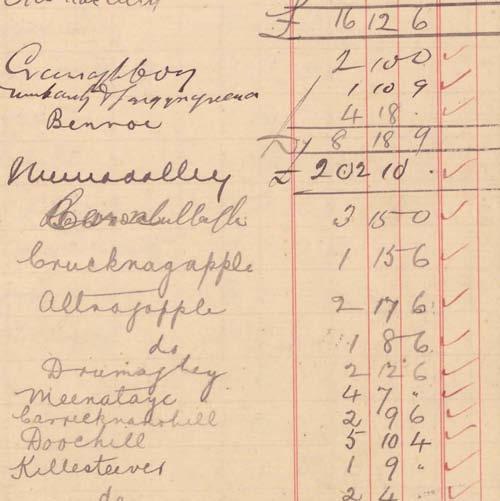 £ 16 12 6
2 10 0
1 10 9
Bennoe 4 18 .
8 18 9
£ 202 10 .
3 15 0
Crucknagapple 1 15 6
Altnagapple 2 17 6
do 1 8 6
Drumaghey 2 12 6
Meenatage 4 7 "
Carricknamohill 2 9 6
Doochill 5 10 4
Killesteever 1 9 "
do 2 4 .